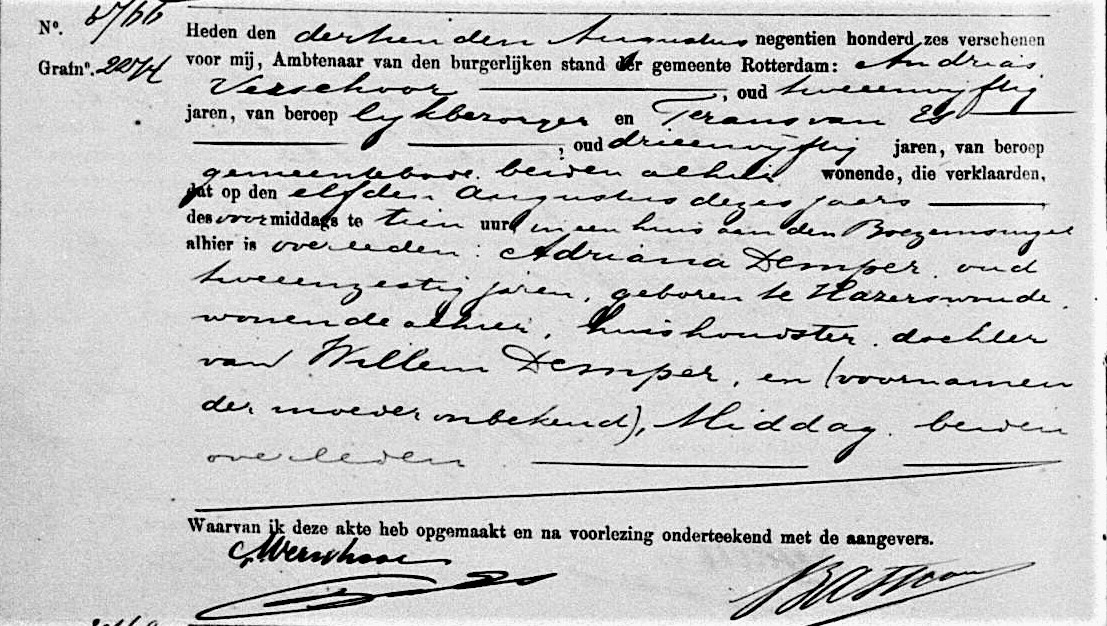 Nº.
Heden den dertienden Augustus negentien honderd zes verschenen
Grafnº. 2274
voor mij, Ambtenaar van den burgerlijken stand der gemeente Rotterdam: Andries
Verschoor, oud tweeenvijftig
jaren, van beroep lijkbezorger en Frans van Es
, oud drieenvijftig jaren, van beroep
gemeentebode, beiden alhier wonende, die verklaarden,
dat op den elfden Augustus dezes jaars
des voormiddags te tien uur in een huis aan den Boezemsingel
alhier is overleden: Adriana Demper, oud
tweeenzestig jaren, geboren te Hazerswoude,
wonende alhier, huishoudster, dochter
van Willem Demper, en (voornamen
der moeder onbekend), Middag, beiden
overleden.
Waarvan ik deze akte heb opgemaakt en na voorlezing onderteekend met de aangevers.